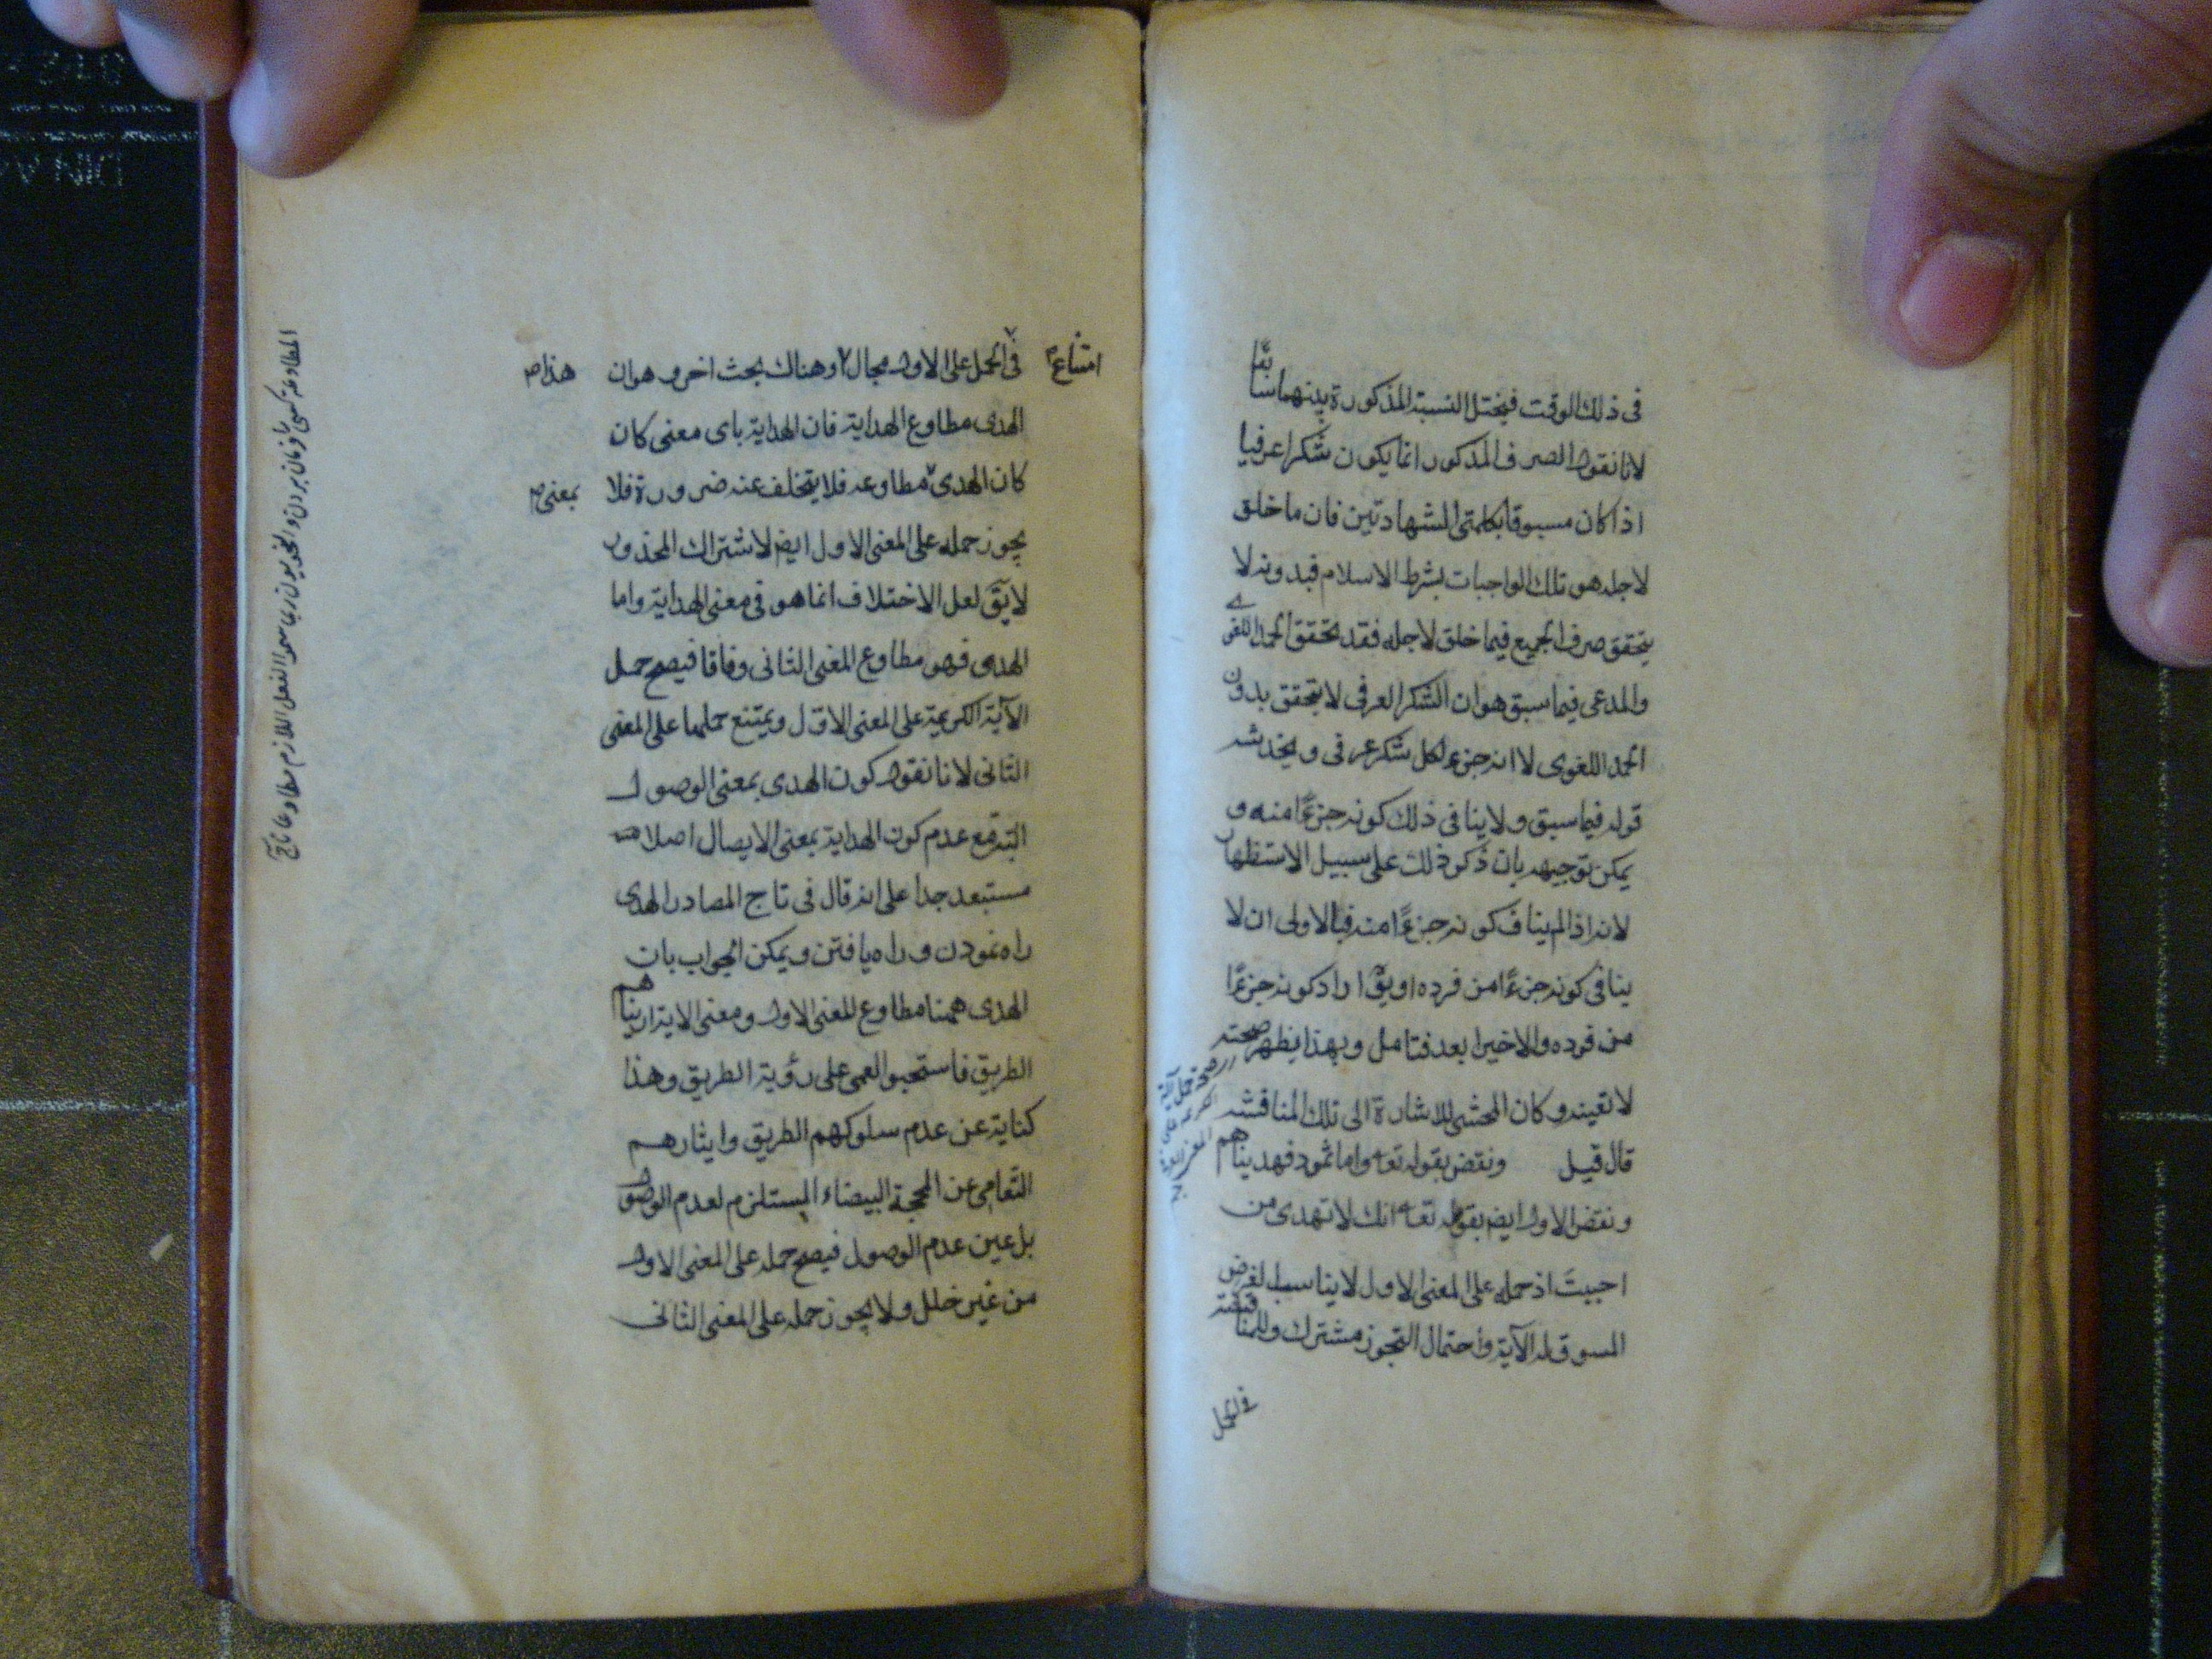 فى ذلك الوقت فيختل النسبة المذكورة بينهما سابقا
لانا نقول الصرف المذكور انما يكون شكرا عرفيا
اذا كان مسبوقا بكلمتى الشهادتين فان ما خلق
لاجله هو تلك الواجبات بشرط الاسلام فبدونه لا
يتحقق صرف الجميع فيما خلق لاجله فقد تحقق الحمد اللغوى
والمدعى فيما سبق هو ان الشكر العرفى لا يتحقق بدون
الحمد اللغوى لا انه جزء لكل شكر عرفى و يخدشه
قوله فيما سبق ولا ينافى ذلك كونه جزءًا منه و
يمكن توجيهه بان ذكر ذلك على سبيل الاستظهار
لانه اذا لم يناف كونه جزءًا منه فبالاولى ان لا
ينافى كونه جزءًا من فرده او يقٓ اراد كونه جزءًا
من فرده والاخير ابعد فتامل وبهذا يظهر صحته
لا تعينه وكان المحشى للاشارة الى تلك المناقشه
قال قيل ونقض بقوله تعه واما ثمود فهديناهم
ونقض الاول ايضه بقوله تعه انك لا تهدى من
احببتَ اذ حمله على المعنى الاول لا يناسب لغرض
المسوق له الآية واحتمال التجوز مشترك وللمناقشه
فى الحمل
امتناع
فى الحمل على الاول مجال وهناك بحث اخر وهو ان
هذا صه
الهدى مطاوع الهداية فان الهداية باى معنى كان
كان الهدى مطاوعه فلا يتخلف عنه ضرورة فلا
بمعنى صه
يجوز حمله على المعنى الاول ايضه لاشتراك المحذور
لا يقٓ لعل الاختلاف انما هو فى معنى الهداية واما
الهدى فهو مطاوع المعنى الثانى وفاقا فيصح حمل
الآية الكريمة على المعنى الاوّل ويمتنع حملها على المعنى
الثانى لانا نقول كون الهدى بمعنى الوصول
البتة مع عدم كون الهداية بمعنى الايصال اصلا
مستبعد جدا على انه قال فى تاج المصادر الهدى
راه نمودن و راه يافتن ويمكن الجواب بان
الهدى ههنا مطاوع للمعنى الاول ومعنى الاية اريناهم
الطريق فاستحبو العمى على رؤية الطريق وهذا
كناية عن عدم سلوكهم الطريق وايثارهم
التعامى عن المحجة البيضاء المستلزم لعدم الوصول
بل عين عدم الوصول فيصح حمله على المعنى الاول
من غير خلل ولا يجوز حمله على المعنى الثانى